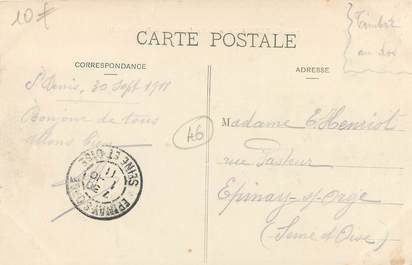 10f
Timbre
au dos
CARTE POSTALE
CORRESPONDANCE
ADRESSE
St Denis, 20 Sept 1911
Bonjour de tous
allons
A6
EPINAY-S-ORGE
SEINE-ET-OISE
Madame E. Henriot
rue Pasteur
Epinay-s/-Orge
(Seine et Oise)